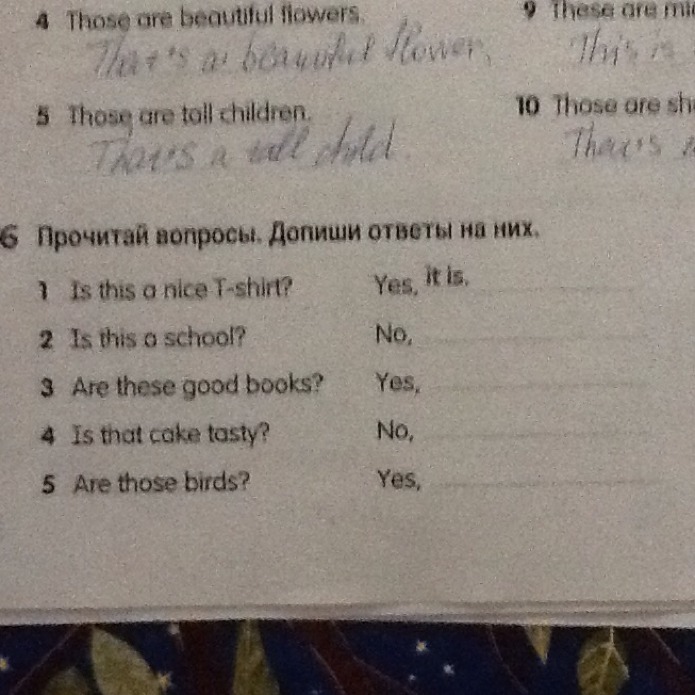 4 Those are beautiful flowers.
That's a beautiful flower.
5 Those are tall children.
That's a tall child.
9 These are
This is
10 Those are
That's
6 Прочитай вопросы. Допиши ответы на них.
1 Is this a nice T-shirt? Yes, it is.
2 Is this a school? No,
3 Are these good books? Yes,
4 Is that cake tasty? No,
5 Are those birds? Yes,